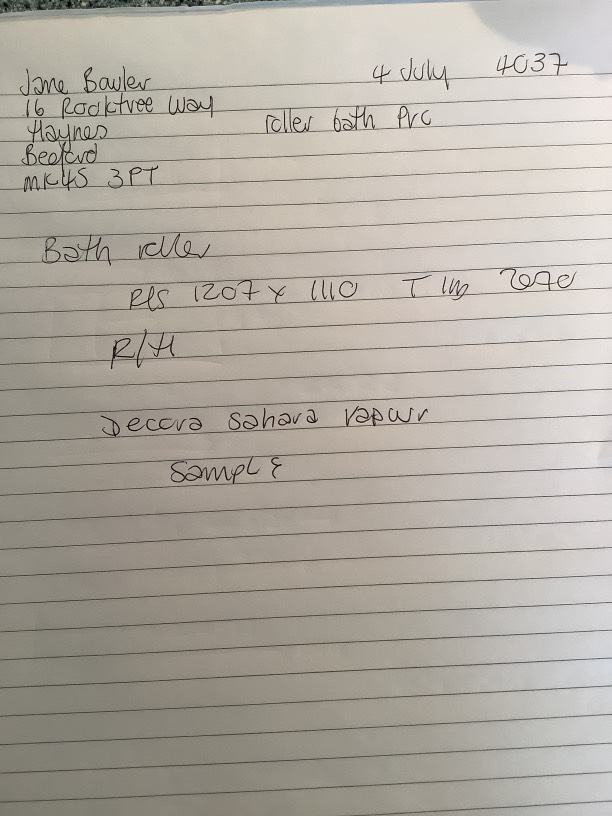 Jane Bayler 4 July 4037
16 Rooktree Way
Haynes roller bath PVC
Bedford
MK45 3PT
Bath roller
1207 x 1110
R/H
Decora Sahara vapour
SAMPLE